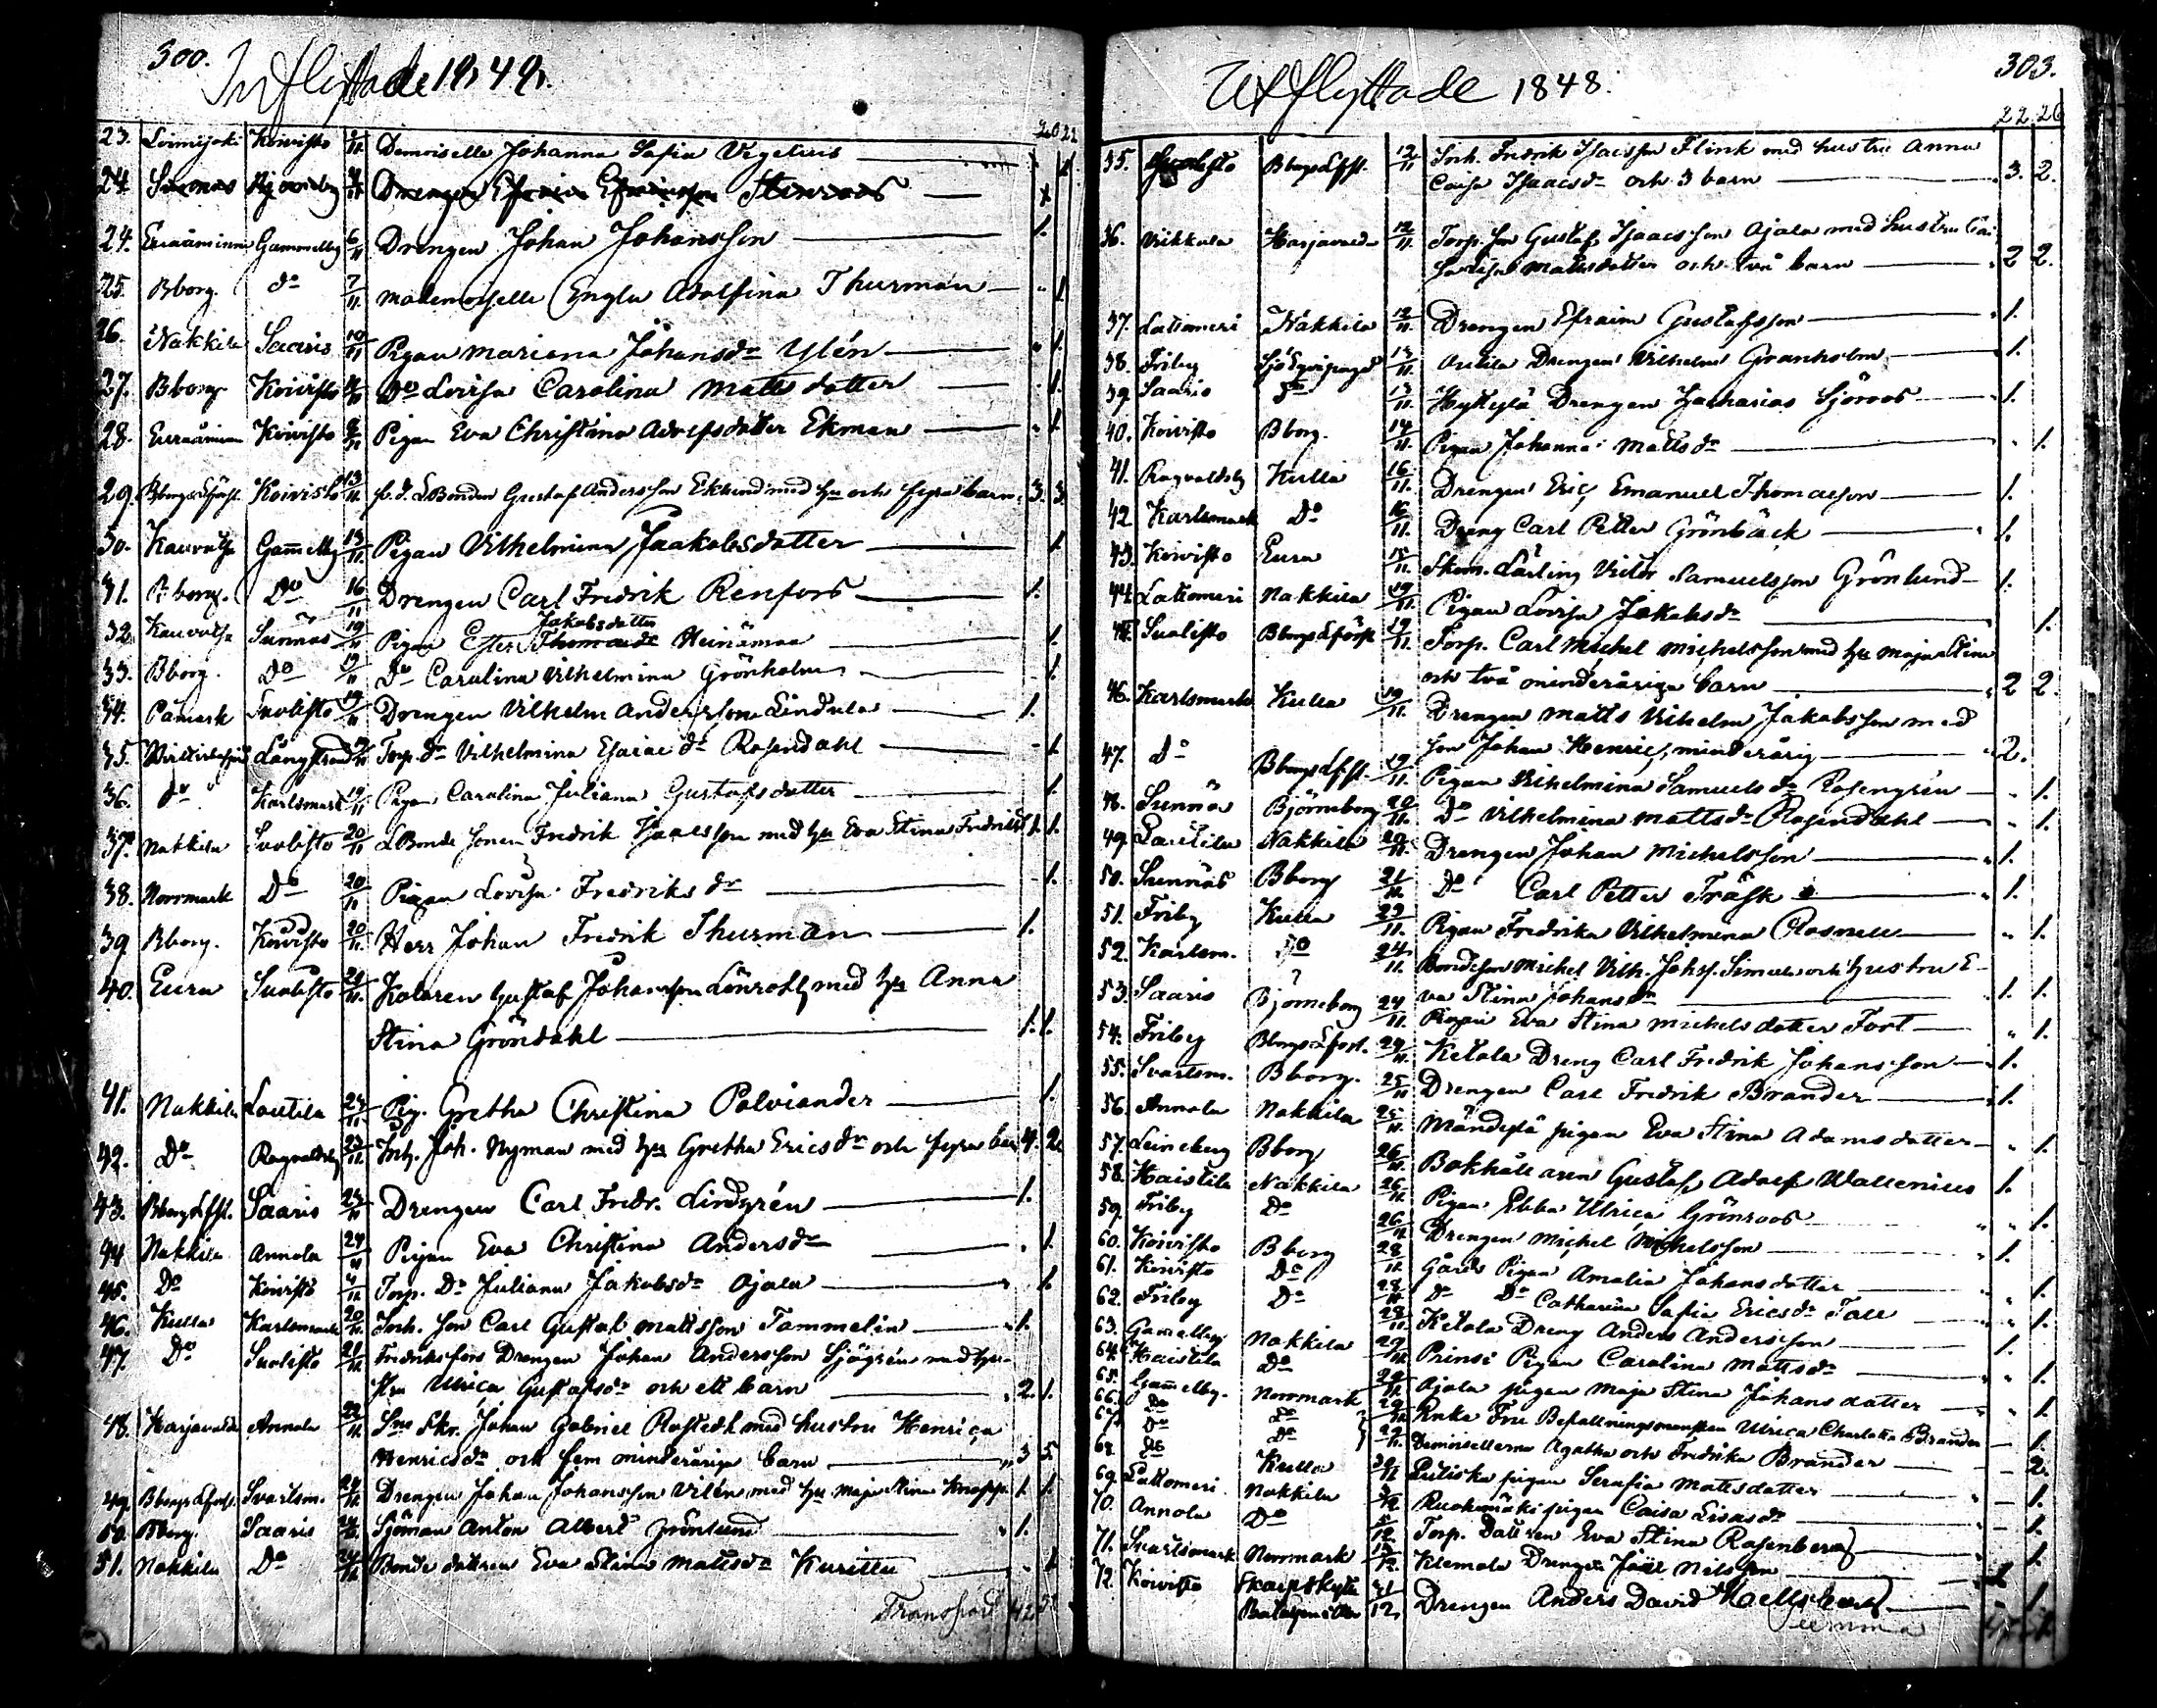 300.
Inflyttade 1849.
20 22
23. Loimijoki Koivisto 2/11 Demoiselle Johanna Sofia Vegelius 1
24. Sunnas Drengen Efraim Efraimsson Stenroos 1
24. Euraåminne Gammelby 6/11 Drengen Johan Johansson 1.
25. Bborg. do 7/11 Mademoiselle Engla Adolfina Thurman 1
26. Nakkila Saaris 10/11 Pigan Mariana Johansdr Ylén 1.
27. Bborg Koivisto Do Lovisa Carolina Matts dotter 1.
28. Euraåminne Koivisto Pigan Eva Christina Adolfsdotter Ekman 1
29. Koivisto 13/11 Bonden Gustaf Andersson Eklund med hu och fyra barn 3. 3.
30. Kauvatsa Gamelby 13/11 Pigan Vilhelmina Jaakobsdotter 1
31. Bborg. Do 16/11 Drengen Carl Fredrik Renfors 1.
Jakobsdotter
32. Kauvatsa Sunnas 19/11 Pigan Ester Thomasdr Heinämaa 1.
33. Bborg. Do 19/11 Do Carolina Vilhelmina Grönholm 1.
34. Påmark Suolisto 19/11 Drengen Vilhelm Andersson Lindula 1.
35. Långstrand Torp. dr Vilhelmina Esaiae dr Rosendahl 1.
36. do Karlsmark 19/11 Pigan Carolina Juliana Gustafsdotter 1.
37. Nakkila Suolisto 20/11 LBonde sonen Fredrik Isaacsson med hu Eva Stina Fredriksdr 1. 1.
38. Norrmark Do 20/11 Pigan Lovisa Fredriks dr 1.
39. Bborg. Koivisto 20/11 Herr Johan Fredrik Thurman 1.
40. Eura Suolisto Kolaren Gustaf Johansson Lönroth med hu Anna
Stina Gröndahl 1. 1.
41. Nakkila Lautila Pig. Gretha Christina Palviander 1.
42. Do Ragvaldsby 23/11 Inh. Joh. Nyman med hu Gretha Ericsdr och fyra barn 4. 2.
43. Bborgs Lfst. Saaris Drengen Carl Fredr. Lindgrén 1.
44 Nakkila Annola 24/11 Pigan Eva Christina Andersdr 1.
45. Do Koivisto Torp. Dr Juliana Jakobsdr Ojala 1.
46. Kulla Karlsmark 20/11 Inh. son Carl Gustaf Mattsson Tammelin 1.
47. Do Suolisto 21/11 Fredriksfors Drengen Johan Andersson Sjögrén med hu-
stru Ulrica Gustafsdr och ett barn 2. 1.
48. Harjavalda Annola 22/11 Johan Gabriel Rostedt med hustru Henrica
Henricsdr och fem minderåriga barn 3 5.
49. Bborgs Lfförs. Svartsm. 24/11 Drengen Johan Johansson Vilén med hu Maja Stina Knapp. 1. 1.
50. Bborg. Saaris Sjöman Anton Albert Grönlund 1.
51. Nakkila Do Bonde dottren Eva Stina Mattsdr Kuritta 1
Transport 42
303.
Utflyttade 1848.
22. 26
35. Suolisto Bborgs Lffst. 12/11 Inh. Fredrik Isacsson Flink med hustru Anna
Caisa Isaacsdr och 3 barn 3. 2.
36. Viikkala Harjavalda 12/11 Torp. son Gustaf Isaacsson Ojala med hustru
Lovisa Mattsdotter och två barn 2 2.
37. Lattomeri Nakkila 12/11 Drengen Efraim Gustafsson 1.
38. Friby 13/11 Anttila Drengen Vilhelm Granholm 1.
39 Saaris Do 13/11 Hyhylä Drengen Zacharias Sjöroos 1.
40. Koivisto Bborg. 14/11 Pigan Johanna Mattsdr 1.
41. Ragvaldsby Kulla 16/11 Drengen Eric Emanuel Thomasson 1.
42 Karlsmark Do 16/11 Dreng Carl Petter Grönbäck 1.
43. Koivisto Eura 15/11 Skom. Lärling Victor Samuelsson Grönlund 1.
44. Lattomeri Nakkila 19/11 Pigan Lovisa Jakobsdr 1.
45. Suolisto Bborgs Lförs. 19/11 Torp. Carl Michel Michelsson med hu Maja Stina
och två minderåriga barn 2 2.
46. Karlsmark Kulla 19/11 Drengen Matts Vilhelm Jakobsson med
son Johan Henric, minderårig 2.
47. Do Bborgs Lf.st. 19/11 Pigan Vilhelmina Samuelsdr Rosengrén 1.
48. Sunnäs Björneborg 20/11 Do Vilhelmina Mattsdr Rosendahl 1.
49. Lautila Nakkila 20/11 Drengen Johan Michelsson 1.
50. Sunnäs Bborg 21/11 Do Carl Petter Träsk 1.
51. Friby Kulla 23/11 Pigan Fredrika Vilhelmina Rosnell 1.
52. Karlsm. Do 24/11 Bondeson Michel Vilh. Johss. Simula och hustru E-
va Stina Johansdr 1. 1.
53. Saaris Björneborg 24/11 Pigan Eva Stina Michelsdotter Fort 1.
54. Friby Bborgs Lförs. 24/11 Ketola Dreng Carl Fredrik Johansson 1.
55. Svartsm. Bborg. 25/11 Drengen Carl Fredrik Brander 1.
56. Annola Nakkila 25/11 Mändylä pigan Eva Stina Adamsdotter 1.
57. Leineberg Bborg 26/11 Bokhållaren Gustaf Adolf Wallenius 1.
58. Haistila Nakkila 26/11 Pigan Ebba Ulrica Grönroos 1.
59. Friby Do 26/11 Drengen Michel Michelsson 1.
60. Koivisto Bborg 28/11 Gårds Pigan Amalia Johansdotter 1.
61. Koivisto Do 28/11 do Do Catharina Sofia Ericsdr Tall 1.
62. Friby Do 28/11 Ketola Dreng Anders Andersson 1.
63. Gamelby Nakkila 29/11 Prinsi Pigan Carolina Mattsdr 1.
64. Haistila Do 29/11 Ojala pigan Maja Stina Johansdotter 1.
65. Gamelby. Norrmark 29/11 Enke Fru Befallningsmanskan Ulrica Charlotta Brander 1.
66. Do Do Demoisellerna Agatha och Fredrika Brander 2.
67. Do Do
68. Do Kulla Putiska pigan Serafia Mattsdotter 1.
69. Lattomeri Nakkila Ruohomäki pigan Caisa Lisasdr 1.
70. Annola Do Torp. Dottren Eva Stina Rosenberg 1.
71. Svartsmark Norrmark Klemola Drengen Joel Nilsson
72. Koivisto Skarpskytte
Bataljon i Åbo Drengen Anders David Hallsberg 1.
Summa